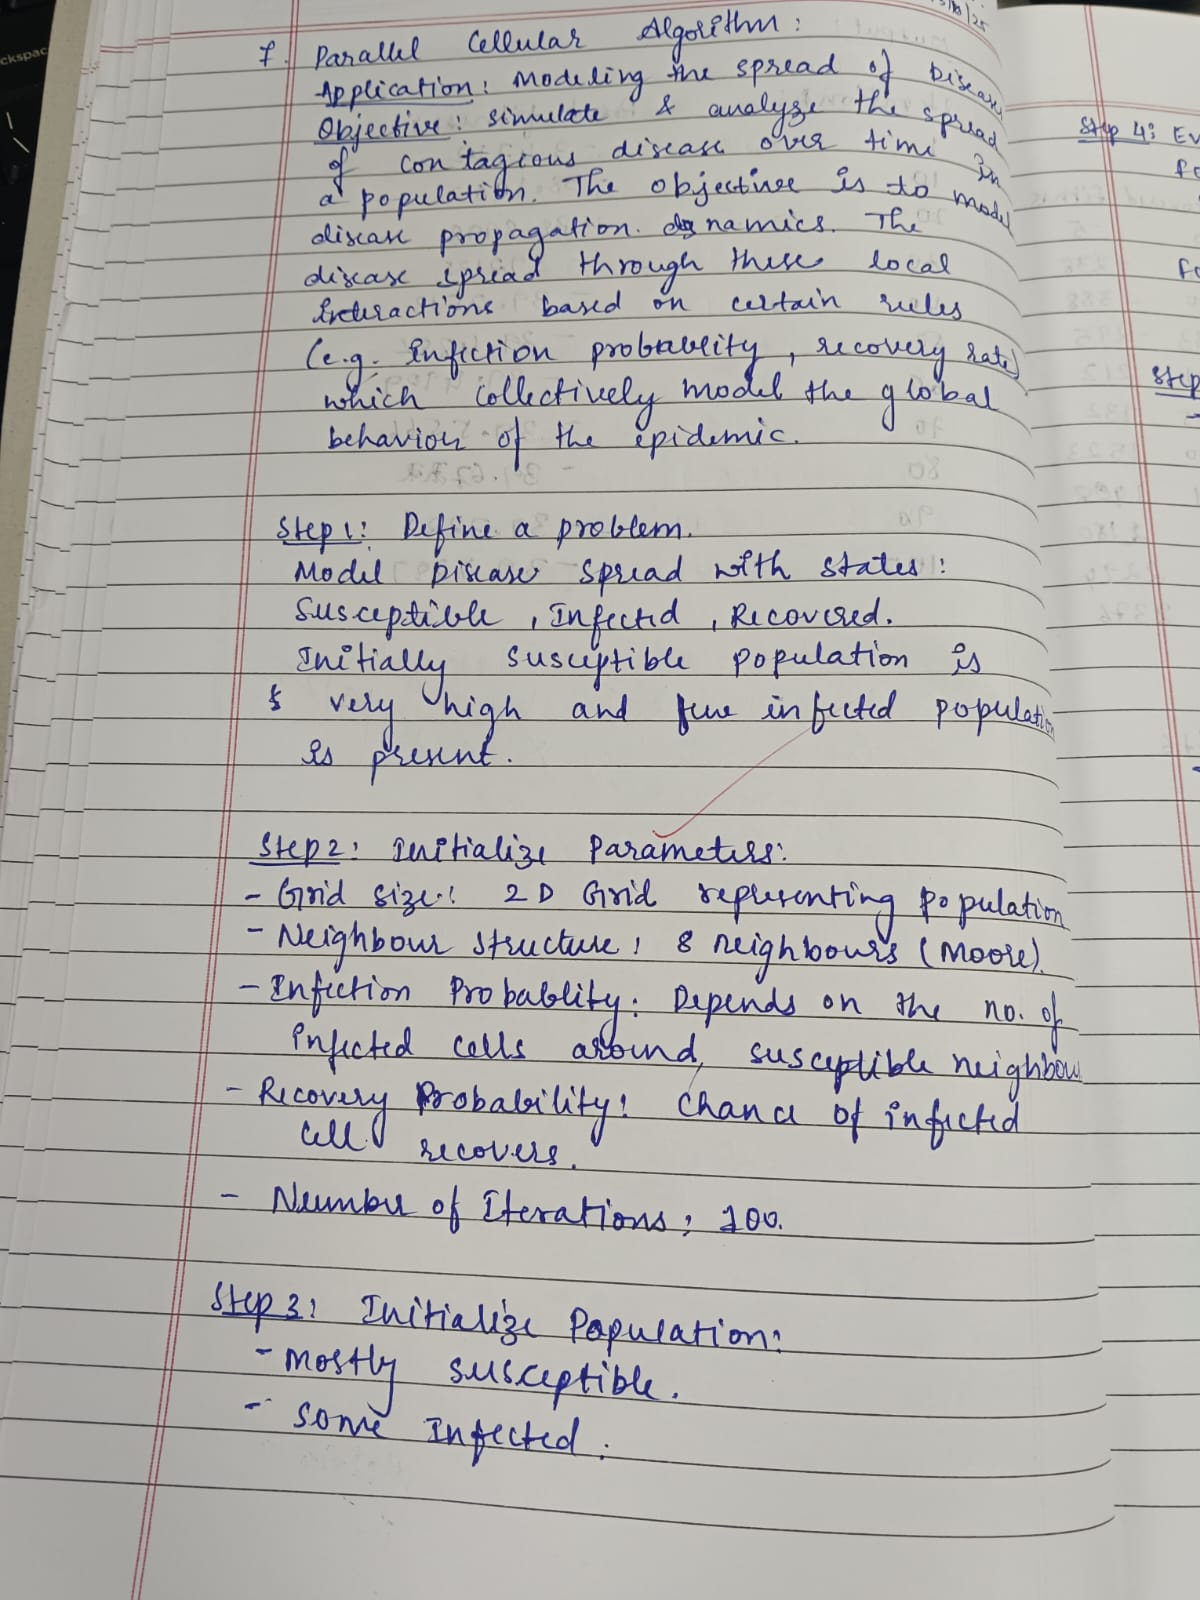 ckspac
13/10/25
7. Parallel Cellular Algorithm:
Application: Modeling the spread of Disease
Objective: simulate & analyze the spread
of contagious disease over time in
a population. The objective is to model
disease propagation dynamics. The
disease spread through these local
interactions based on certain rules
(e.g. Infection probability, recovery rate)
which collectively model the global
behavior of the epidemic.
Step 1: Define a problem.
Model Disease Spread with states:
Susceptible, Infected, Recovered.
Initially susceptible population is
very high and few infected population
is present.
Step 2: Initialize Parameters:
- Grid size: 2D Grid representing population
- Neighbour structure: 8 neighbours (Moore).
- Infection Probablity: Depends on the no. of
infected cells around susceptible neighbour
- Recovery Probability: Chance of infected
cell recovers.
- Number of Iterations: 100.
Step 3: Initialize Population:
- mostly susceptible.
- some Infected.
Step 4: Ev
fo
fo
Step